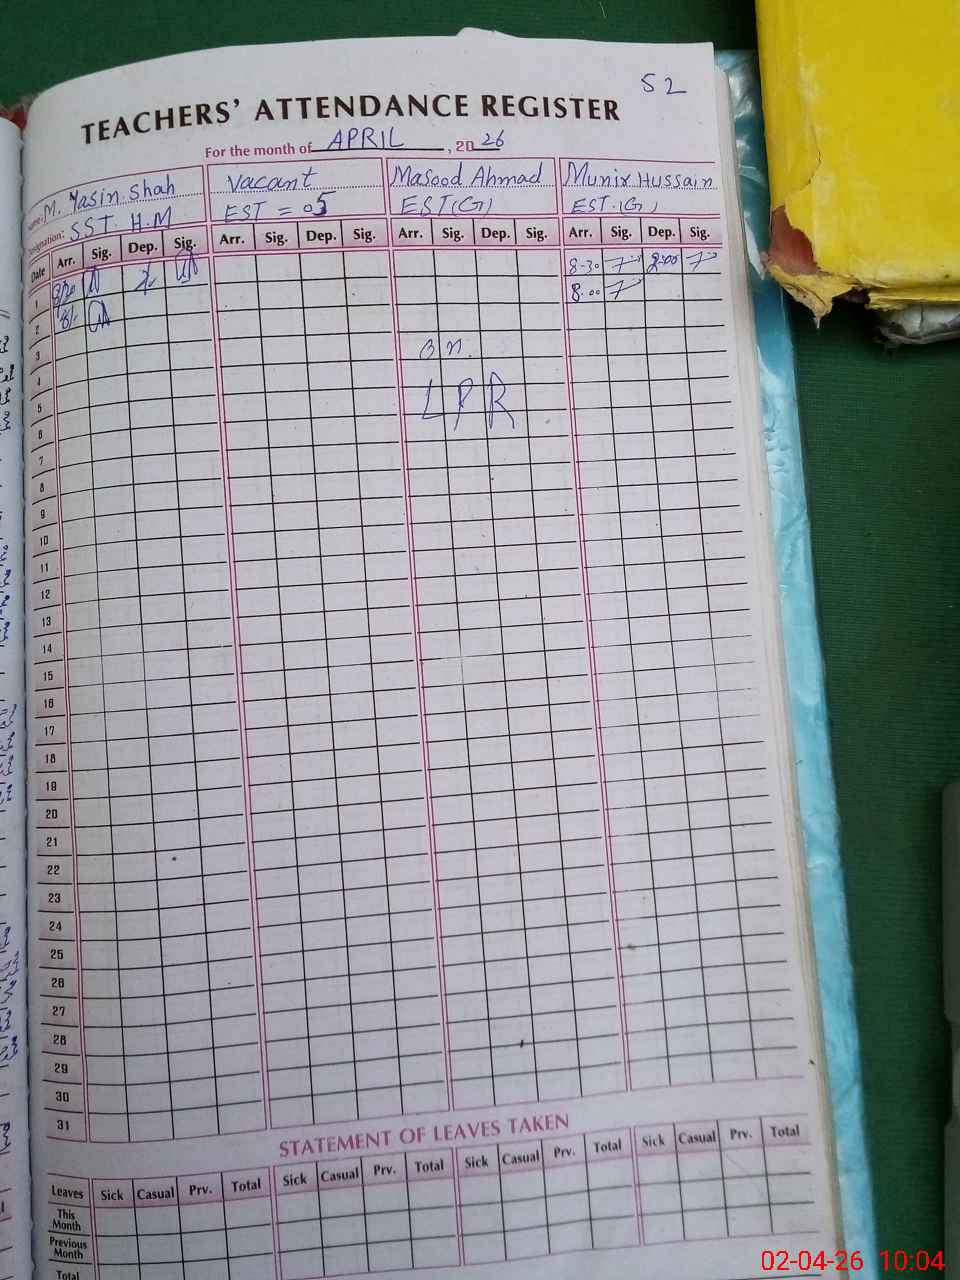 52
TEACHERS' ATTENDANCE REGISTER
For the month of APRIL, 2026
Name: M. Yasin Shah Vacant Masood Ahmad Munir Hussain
Designation: SST. H.M EST = 05 EST(G) EST.(G)
Date Arr. Sig. Dep. Sig. Arr. Sig. Dep. Sig. Arr. Sig. Dep. Sig. Arr. Sig. Dep. Sig.
1 8-30 2:00
2 8.00
3 on
4
5 LPR
6
7
8
9
10
11
12
13
14
15
16
17
18
19
20
21
22
23
24
25
26
27
28
29
30
31
STATEMENT OF LEAVES TAKEN
Leaves Sick Casual Prv. Total Sick Casual Prv. Total Sick Casual Prv. Total Sick Casual Prv. Total
This Month
Previous Month
Total
02-04-26 10:04